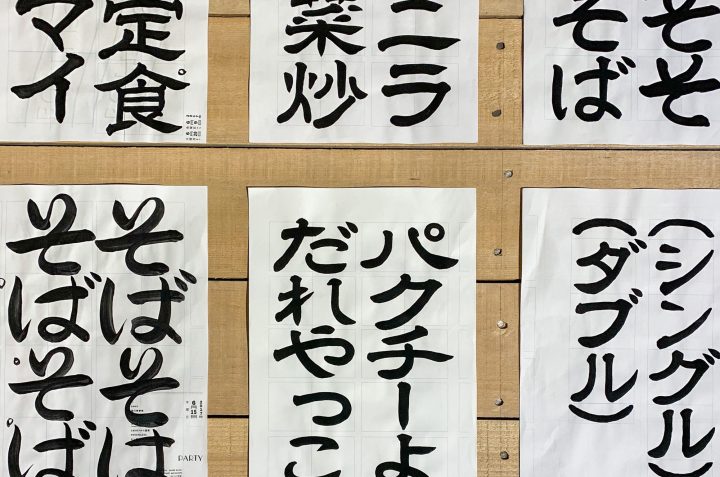 そそ
そば
ニラ
菜炒
定食
マイ
(シングル)
(ダブル)
パクチーよ
だれやっこ
そばそば
そばそば
6
15
PARTY